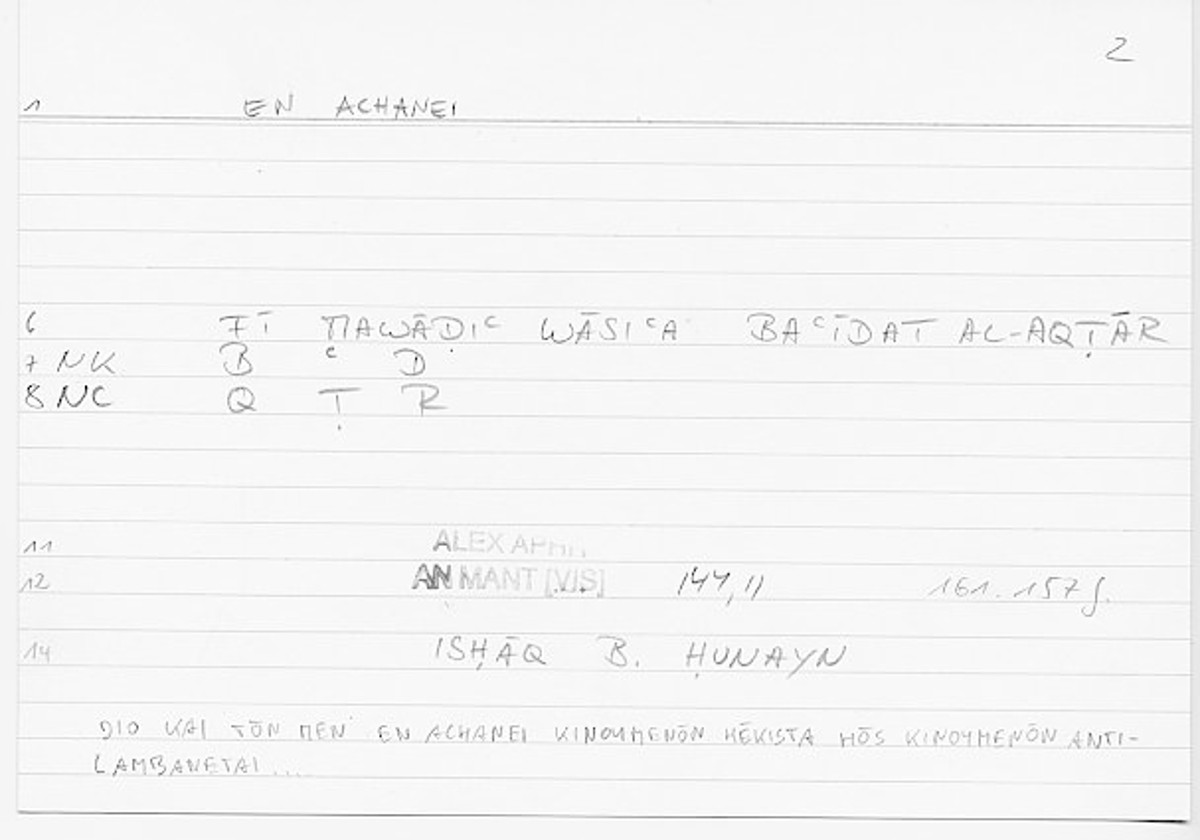 2
1 EN ACHANEI
6 FĪ MAWĀḌIᶜ WĀSIᶜA BAᶜĪDAT AL-AQṬĀR
7 NK B ᶜ D
8 NC Q Ṭ R
11 ALEX APHR
12 AN MANT [VIS] 144,11 161.157f.
14 ISḤĀQ B. ḤUNAYN
DIO KAI TŌN MEN EN ACHANEI KINOYMENŌN HĒKISTA HŌS KINOYMENŌN ANTI-
LAMBANETAI....